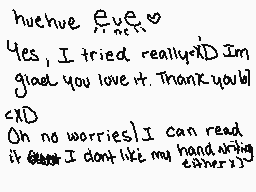 huehue eue ♡
Yes, I tried really <XD Im
glad you love it. Thank you b]
<XD
Oh no worries! I can read
it I dont like my hand writing
either x]